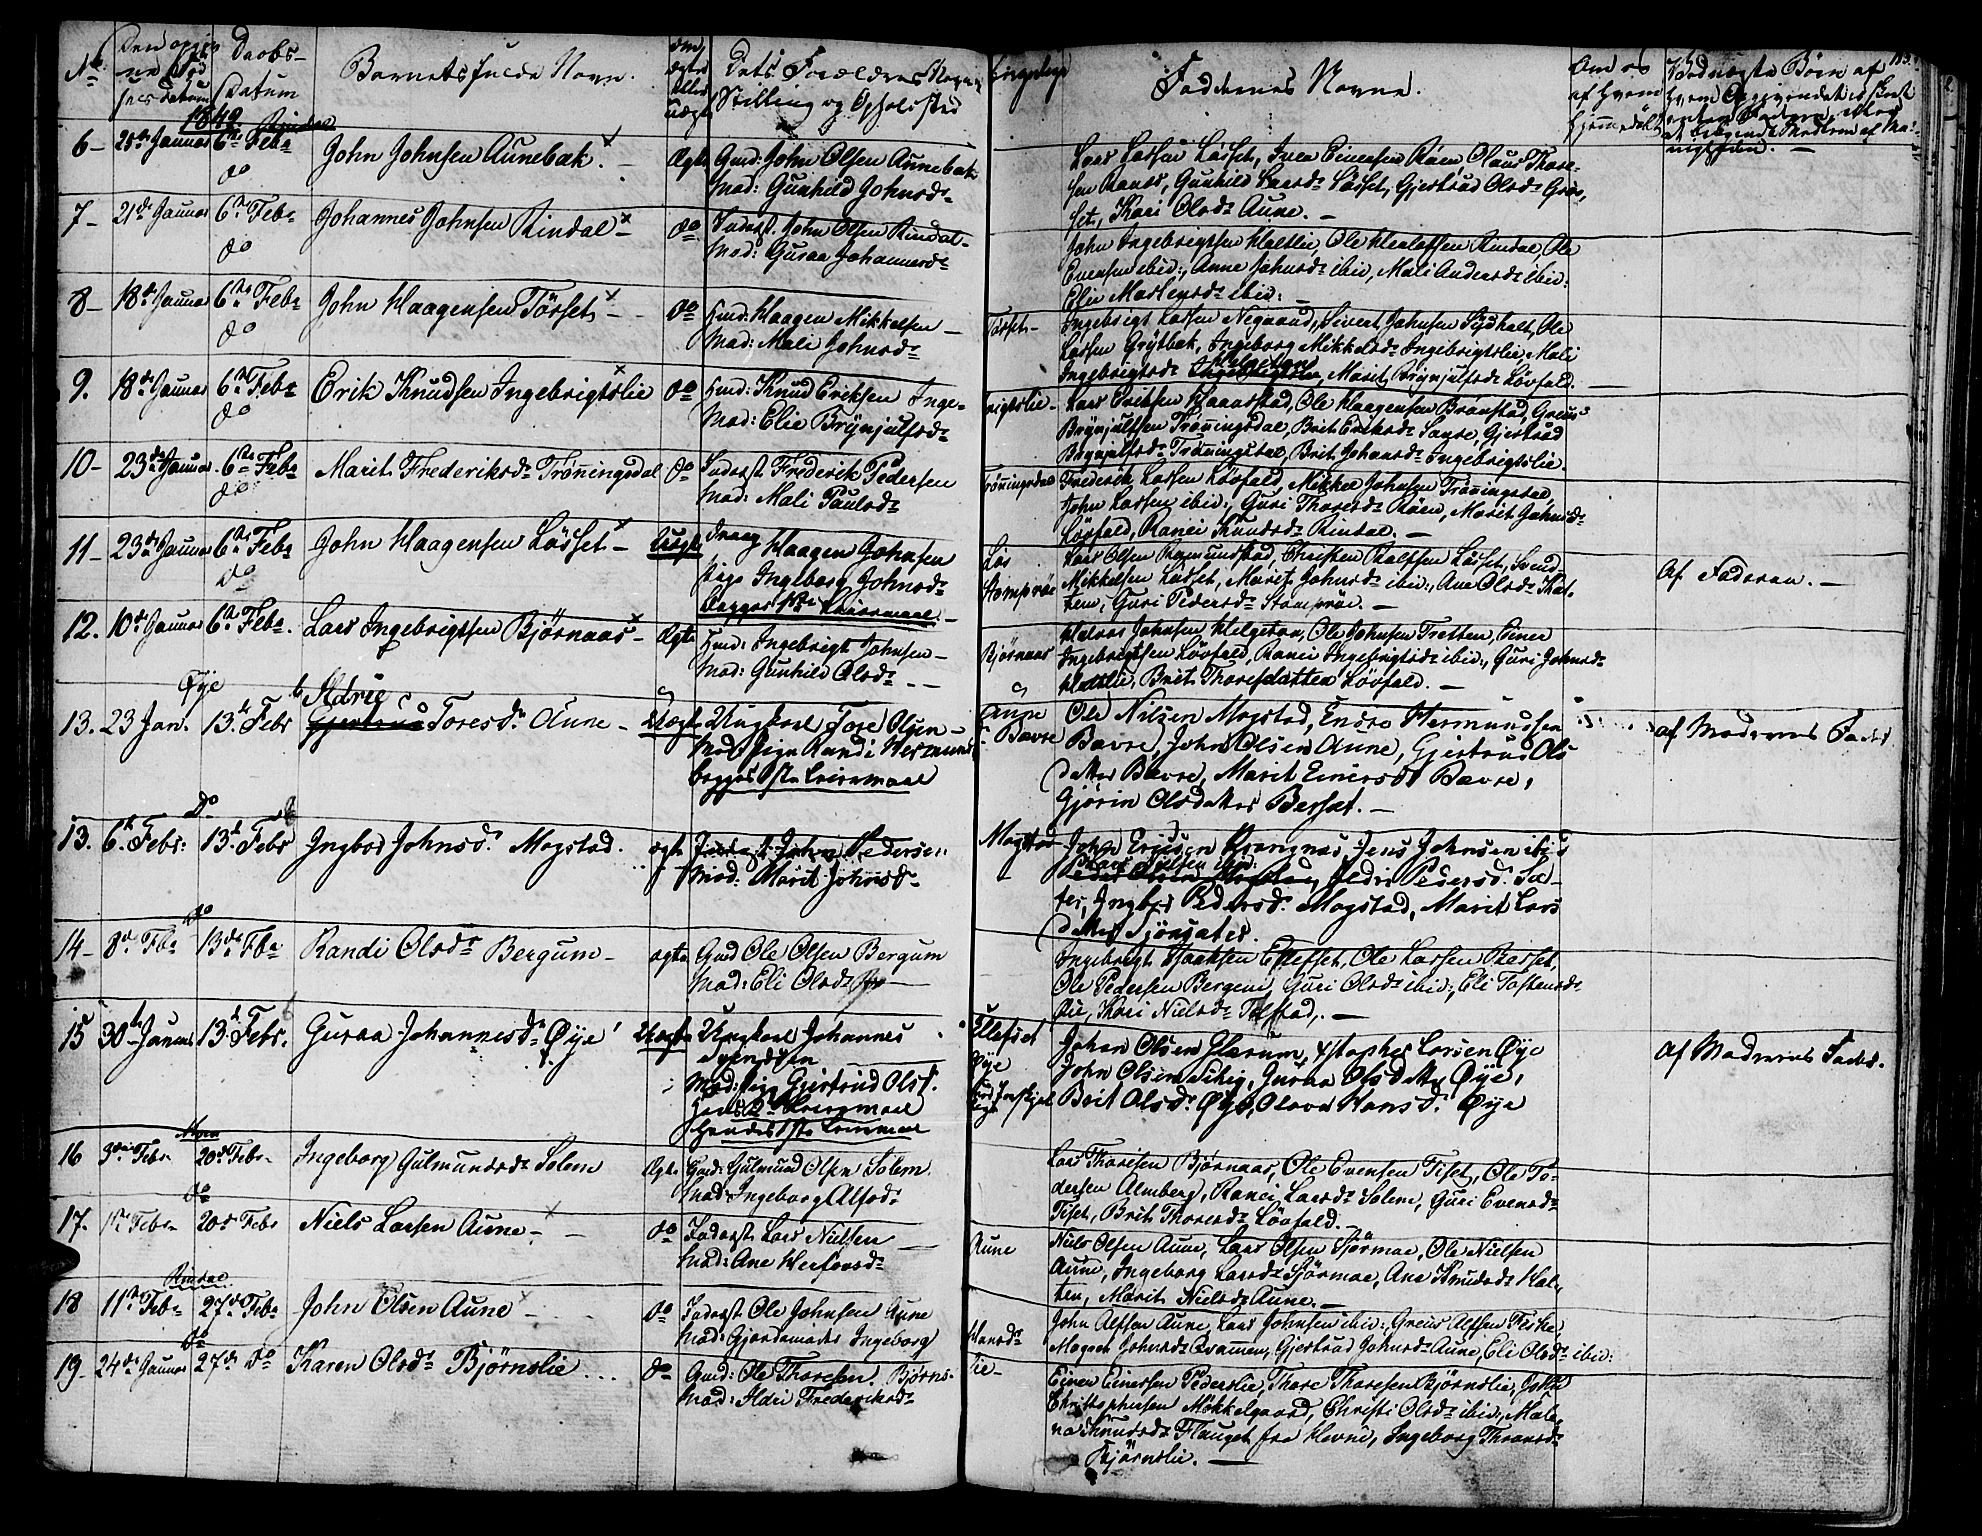 No
Daabs-
Datum
Barnets fulde Navn.
Dets Forældres Navne
Stilling og Opholdsted
Faddernes Navne.
Om og
af hvem
hjemmedøbt
Ved uægte Børn af
hvem Opgivendet er skeet
enten Faderen, eller
1842 Rindal
6 - 25de Januar 6te Febr John Johnsen Aunebak. Ægte Gmd: John Olsen Aunebak
do Mod: Gunhild Johnsdr
Lars Larsen Løsset, Iver Einersen Røen Olaus Thore-
sen Ranes, Gunhild Larsdr Løsset, Gjertrud Olsdr Grøs-
set, Kari Olsdr Aune.
7 - 21de Januar 6te Febr Johannes Johnsen Rindal do Inderst. John Olsen Rindal
do Mod: Guraa Johannesdr
John Ingebrigtsen Haltlie, Ole Haldosen Rindal, Ole
Evensen ibid:, Anne Johnsdr ibid, Mali Andersdr ibid:
Elie Mortensdr ibid:
8 - 18de Januar 6te Febr John Haagensen Tørset do Gmd: Haagen Mikkelsen Tørset
do Mod: Mali Johnsdr
Ingebrigt Larsen Negaard, Sivert Johnsen Sydhalt, Ole
Larsen Grytbak, Ingeborg Mikkelsdr Ingebrigtslie, Mali
Ingebrigtsdr Helgetun, Marit Brynjulfsdr Løvfald.
9. 18de Januar 6te Febr Erik Knudsen Ingebrigtslie do Gmd: Knud Eriksen Inge-
brigtslie
do Mod: Elie Brynjulfsdr
Lars Eriksen Haarstad, Ole Haagensen Brønstad, Greus
Brynjulfsen Trøningsdal, Brit Eriksdr Sande, Gjertrud
Brynjulfsdr Trøningsdal, Brit Johnsdr Ingebrigtslie.
10 - 23de Januar 6te Febr Marit Frederiksdr Trøningsdal do Inderst Frederik Pedersen Trøningsdal
do Mod: Mali Paulsdr
Frederik Larsen Løvfald, Mikkel Johnsen Trøningsdal,
John Larsen ibid:, Guri Thoresdr Røen, Marit Johnsdr
Løvfald, Ranei Knudsdr Rindal.
11 - 23de Januar 6te Febr John Haagensen Løsset Uægte Haagen Johnsen Løs
do Pige Ingeborg Johnsdr Stomprøe
begges 1ste Leiermaal
Lars Olsen Romundstad, Christen Rolfsen Løsset, Svend
Mikkelsen Løsset, Marit Johnsdr ibid:, Ane Olsdr
Guri Pedersdr Stomprøe.
Af Faderen.
12. 10de Januar 6te Febr. Lars Ingebrigtsen Bjørnaas Ægte Gmd: Ingebrigt Johnsen Bjørnaas
Mod: Gunhild Olsdr
Halvor Johnsen Helgetun, Ole Johnsen Tretten, Einer
Ingebrigtsen Løvfald, Ranei Ingebrigtsdr ibid:, Guri Johnsdr
Haltlie, Brit Thoresdatter Løvfald.
Øye
13. 23 Jan. 13de Febr Ildrie Gjertrud Toresdr Aune - Uægte Ungkarl Tore Olsen Aune
Mod Pige Randi Hermunds Bævre
begges 1ste Leiermaal
Ole Nilsen Mogstad, Endre Hermundsen
Bævre, John Olsen Aune, Gjertrud Ols
datter Bævre, Marit Einersdr Bævre,
Gjørin Olsdatter Bersæt.
af Moderens Fader
Do
13. 6te Febr: 13de Febr Ingbor Johnsdr Mogstad. ægte Inderst John Pedersen Mogstad
Mod: Marit Johnsdr
John Ericsen Qvangnæs Jens Johnsen ibid
Lars Nielsen ibid: Ildri Pedersdr Sæ-
ter, Ingbor Pedersdr Mogstad, Marit Lars
datter Sjøsæter.
do
14 - 8de Fbr 13de Fbr Randi Olsdr Bergum - ægte Gmd Ole Olsen Bergum
Mod: Eli Olsdr
Ingebrigt Isaksen Ellefset, Ole Larsen Bersset,
Ole Pedersen Bergem, Guri Olsdr ibid:, Eli Tostensdr
Øie, Kari Nielsdr Tølstad,
15 30te Januar 13de Febr. Guraa Johannesdr Øye Uægte Ungkarl Johannes Ellefset
Svendsen
Mod: Pige Gjertrud Olsd. Øye
2de Leiermaal
Hendes 1ste Leiermaal
Johan Olsen Glærum, Xstopher Larsen Øye
John Olsen Settig, Guraa Olsdatter Øye,
Brit Olsdr Øye, Olava Hansd. Øye
Af Moderens Fader.
Moen
16 3die Febr 20de Febr Ingeborg Gulmundsdr Solem Ægte Gmd: Gulmund Olsen Solem
Mod: Ingeborg Alfsdr
Lars Thoresen Bjørnaas, Ole Evensen Tiset, Ole Pe-
dersen Almberg, Ranei Larsdr Solem, Guri Evensdr
Tiset, Brit Thoresdr Løvfald.
do
17. 1ste Febr 20de Febr Niels Larsen Aune - do Inderst Lars Nielsen Aune
Mod: Ane Herlovsdr
Niels Olsen Aune, Lars Olsen Sjørmoe, Ole Nielsen
Aune, Ingeborg Larsdr Sjørmoe, Ane Knudsdr Hal-
ten, Marit Nielsdr Aune.
Rindal
18 11te Febr 27de Febr John Olsen Aune - do Inderst Ole Johnsen Aune
Mod: Gjordemoder Ingeborg Hansdr
John Alfsen Aune, Lars Johnsen ibid:, Greus Alfsen Fiske,
Magnel Johnsdr Qvammen, Gjertrud Johnsdr Aune, Eli Olsdr ibid:
do
19 - 24de Januar 27de do Karen Olsdr Bjørnslie do Gmd: Ole Thoresen Bjørns-
lie
Mod: Ildri Frederiksdr
Einer Einersen Pederslie, Thore Thoresen Bjørnslie, John
Christophersen Mikkelgaard, Christi Olsdr ibid:, Male-
na Knudsdr Flauget fra Hevne, Ingeborg Thronsdr
Bjørnslie.